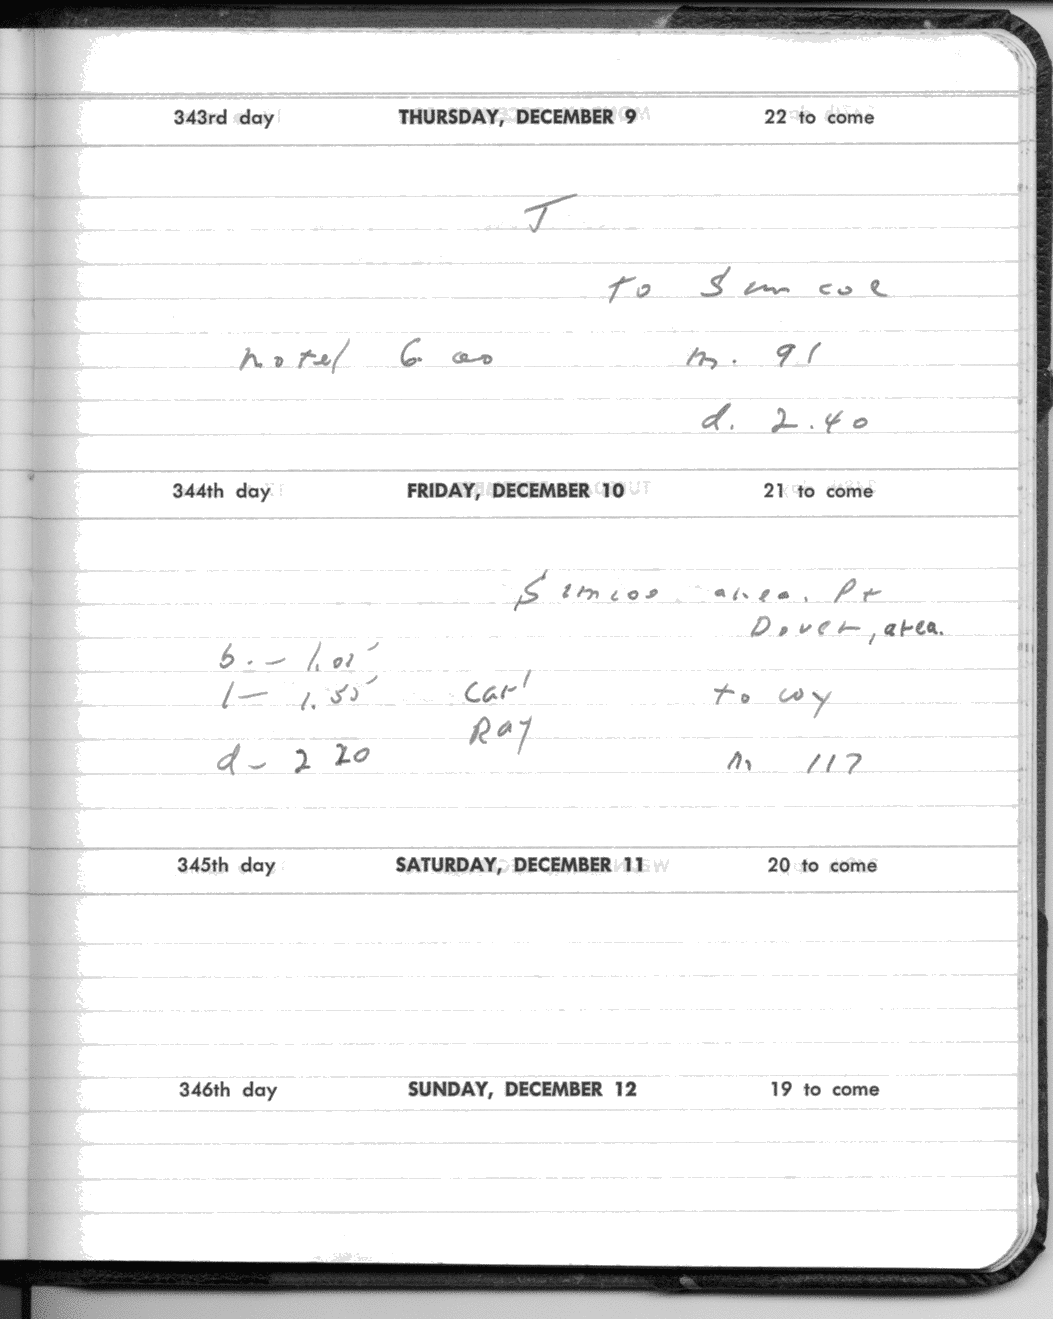 343rd day THURSDAY, DECEMBER 9 22 to come
J
to Simcoe
hotel 6 00 m. 91
d. 2.40
344th day FRIDAY, DECEMBER 10 21 to come
Simcoe area. Pt
Dover, area.
b. - 1.05
l - 1.55 Carl to
Ray
d - 2 20 m 117
345th day SATURDAY, DECEMBER 11 20 to come
346th day SUNDAY, DECEMBER 12 19 to come